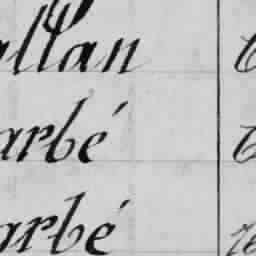 allan
arbé
arbé